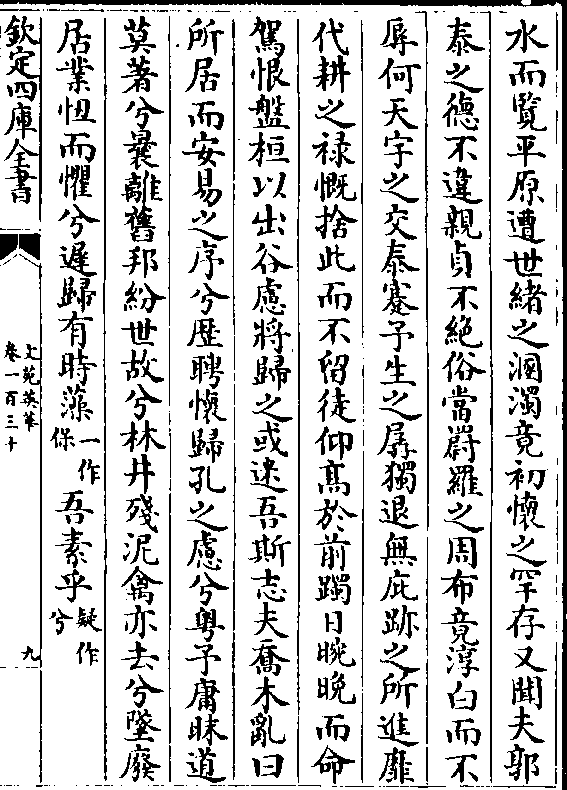 水而覽平原遭世緒之溷濁竟初懷之罕存又聞夫郭
泰之德不違親貞不絕俗當罻羅之周布竟淳白而不
辱何天宇之交泰蹇予生之孱獨退無庇跡之所進靡
代耕之祿慨捨此而不留徒仰髙於前躅日晼晚而命
駕恨盤桓以出谷慮將歸之或迷吾斯志夫喬木亂曰
所居而安易之序兮歴聘懷歸孔之慮兮粤予庸昧道
莫著兮曩離舊邦紛世故兮林井殘泥禽亦去兮墜廢
居業忸而懼兮遲歸有時藻一作保吾素乎疑作兮
欽定四庫全書
文苑英華
卷一百三十
九